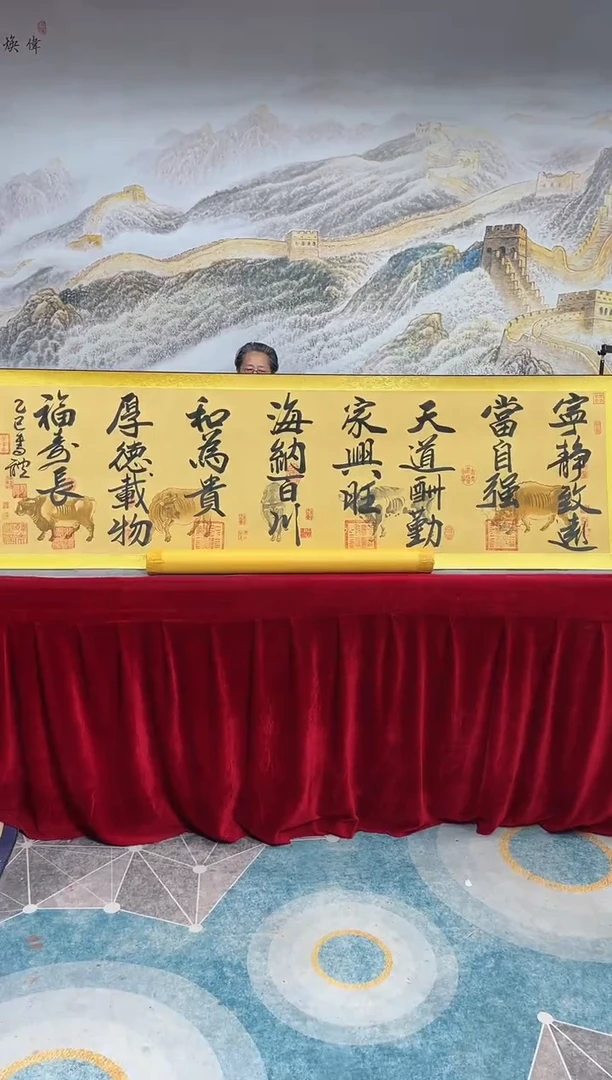 偉煥
寧静致遠
當自強
天道酬勤
家興旺
海納百川
和為貴
厚德載物
福寿長
乙巳